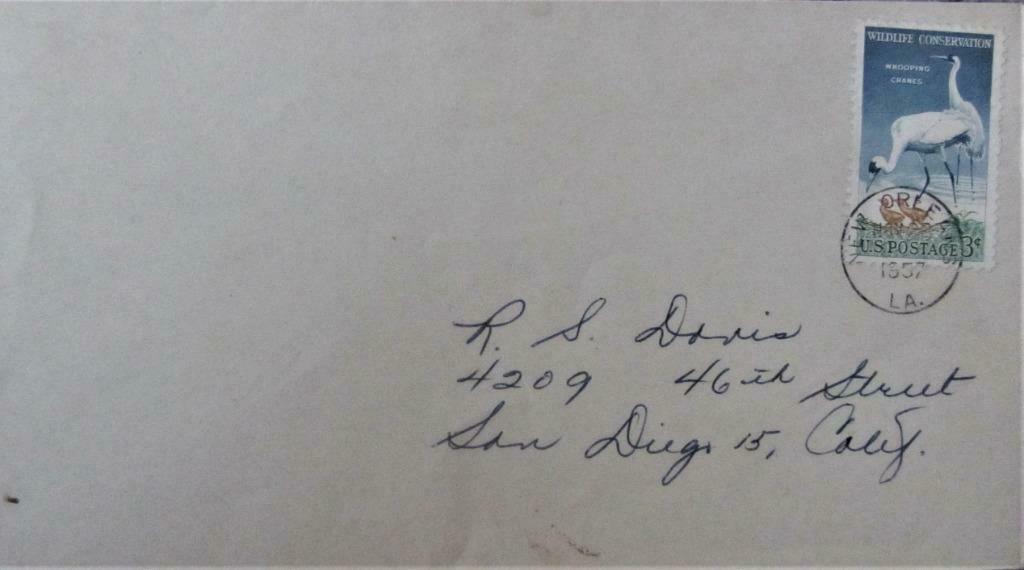 WILDLIFE CONSERVATION
WHOOPING
CRANES
U.S. POSTAGE 3¢
NEW ORLEANS
1957
LA.
R. S. Davis
4209 46th Street
San Diego 15, Calif.